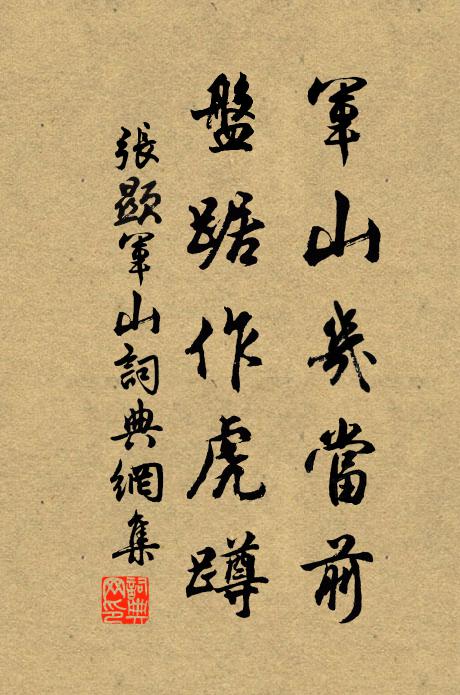 軍山岌當前
盤踞作虎蹲
張顯軍山詞典網集
詞典网印